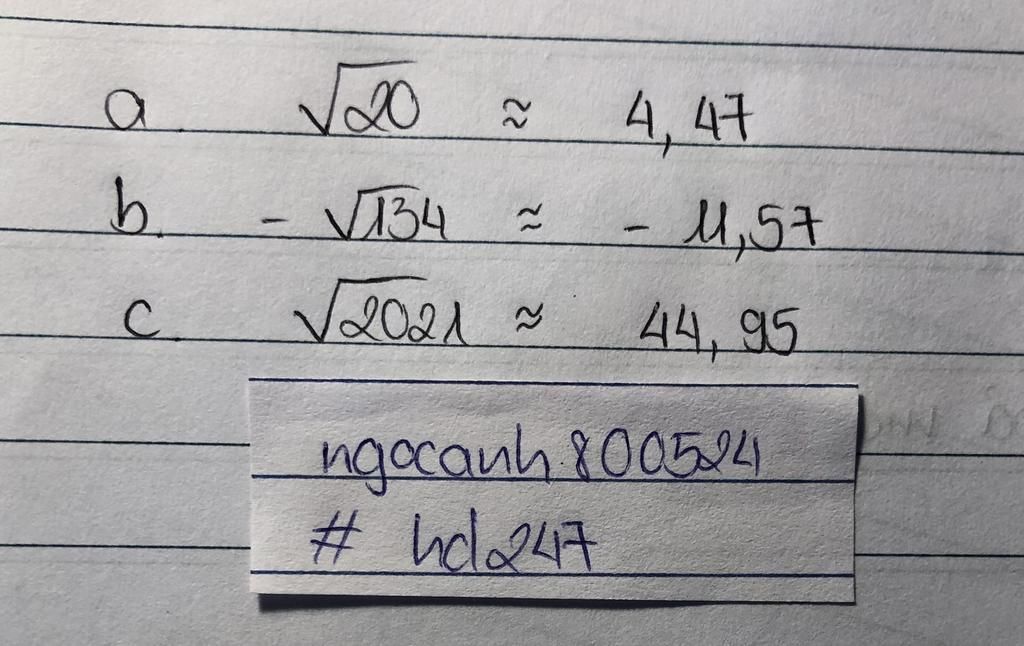 a. √20 ≈ 4,47
b. - √134 ≈ - 11,57
c. √2021 ≈ 44,95
ngocanh.800524
# hd247